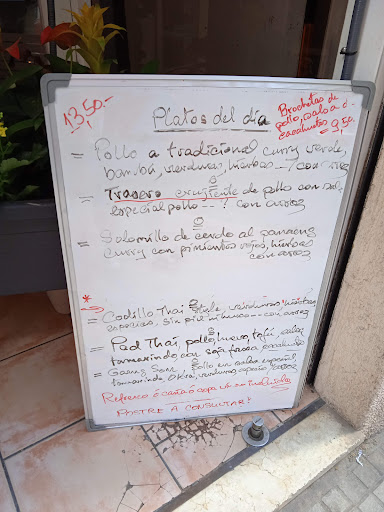 13,50.-
Platos del día
Brochetas de
pollo, salsa d
cacahuetes
3,50.
= Pollo a tradicional curry verde,
bambú, verduras, hierbas --/ con arroz
= Trasero crujiente de pollo con sal
especial pollo --/ con arroz
= Solomillo de cerdo al panaeng
curry con pimientos rojos, hierbas
con arroz
*
= Codillo Thai Style, verduras,
especias, con arroz
= Pad Thai, pollo, huevo, tofu, salsa
tamarindo, con soja fresca, cacahuete
= pollo en salsa especial
tamarindo, verduras, arroz
Refresco ó caña ó copa vino incluidos
POSTRE A CONSULTAR!